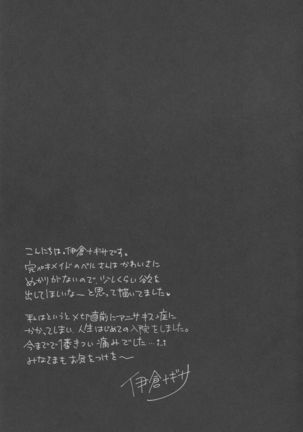 こんにちは、伊倉ナギサです。
完パキメイドのベルさんはかわいさに
ぬかりがないので、少しくらい欲を
出してほしいな〜と思って描いてました♥
私はというと〆切直前にアニサキス症に
かかってしまい人生はじめての入院をしました。
今までで1番きつい痛みでした…;;
みなさまもお気をつけを〜
伊倉ナギサ